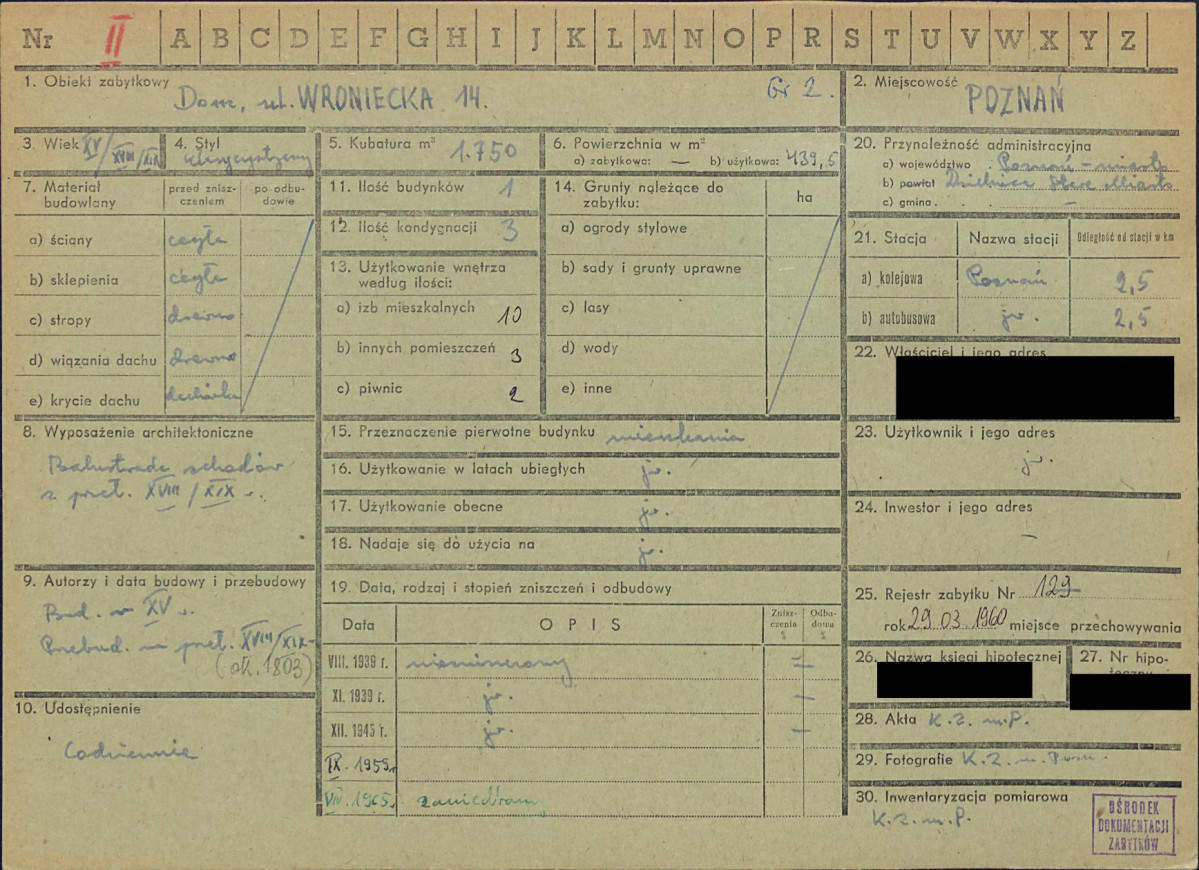 Nr II A B C D E F G H I J K L M N O P R S T U V W X Y Z
1. Obiekt zabytkowy Dom, ul. WRONIECKA 14. Gr 2.
2. Miejscowość POZNAŃ
3. Wiek XV/XVIII/XIX
4. Styl klasycystyczny
5. Kubatura m³ 1.750
6. Powierzchnia w m²
a) zabytkowa: — b) użytkowa: 439,5
7. Materiał budowlany
przed zniszczeniem
po odbudowie
a) ściany cegła
b) sklepienia cegła
c) stropy drewno
d) wiązania dachu drewno
e) krycie dachu dachówka
8. Wyposażenie architektoniczne
Balustrada schodów
z przeł. XVIII/XIX w.
9. Autorzy i data budowy i przebudowy
Bud. w XV w.
Przebud. na przeł. XVIII/XIX
(ok. 1803)
10. Udostępnienie
Codziennie
11. Ilość budynków 1
12. Ilość kondygnacji 3
13. Użytkowanie wnętrza
według ilości:
a) izb mieszkalnych 10
b) innych pomieszczeń 3
c) piwnic 2
14. Grunty należące do
zabytku:
ha
a) ogrody stylowe
b) sady i grunty uprawne
c) lasy
d) wody
e) inne
15. Przeznaczenie pierwotne budynku mieszkania
16. Użytkowanie w latach ubiegłych jw.
17. Użytkowanie obecne jw.
18. Nadaje się do użycia na j.
19. Data, rodzaj i stopień zniszczeń i odbudowy
Data OPIS Zniszczenia % Odbudowa %
VIII. 1939 r. niezniszczony —
XI. 1939 r. jw. —
XII. 1945 r. jw. —
IX. 1959 r
VII. 1965 r. zaniedbany
20. Przynależność administracyjna
a) województwo Poznań-miasto
b) powiat Dzielnica Stare Miasto
c) gmina. —
21. Stacja Nazwa stacji Odległość od stacji w km
a) kolejowa Poznań 2,5
b) autobusowa jw. 2,5
22. Właściciel i jego adres
23. Użytkownik i jego adres
jw.
24. Inwestor i jego adres
—
25. Rejestr zabytku Nr 129
rok 29.03.1960 miejsce przechowywania
26. Nazwa księgi hipotecznej
27. Nr hipoteczny
28. Akta K.Z.m.P.
29. Fotografie K.Z.m.Pozn.
30. Inwentaryzacja pomiarowa
K.Z.m.P.
OŚRODEK
DOKUMENTACJI
ZABYTKÓW